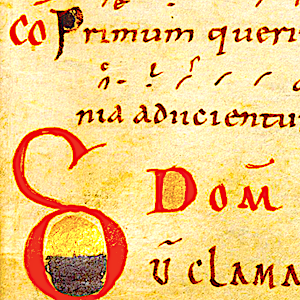 CO Primum queri
nia aducientur
S DOM̄
ū clama